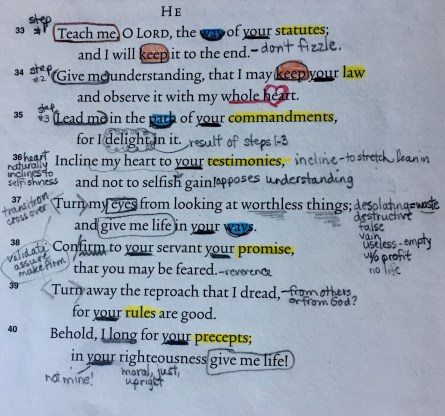 HE
step #1
33 Teach me, O LORD, the way of your statutes;
and I will keep it to the end. - don't fizzle.
step #2
34 Give me understanding, that I may keep your law
and observe it with my whole heart.
step #3
35 Lead me in the path of your commandments,
for I delight in it. result of steps 1-3
36 Incline my heart to your testimonies, incline - to stretch, lean in
heart naturally inclines to selfishness
and not to selfish gain! opposes understanding
37 Turn my eyes from looking at worthless things;
transition cross over
and give me life in your ways.
destructive
false
vain
useless - empty
w/o profit
no life
38 Confirm to your servant your promise,
validate
assure
make firm
that you may be feared. - reverence
39 Turn away the reproach that I dread, - from others
or from God?
for your rules are good.
40 Behold, I long for your precepts;
in your righteousness give me life!
not mine!
moral, just,
upright